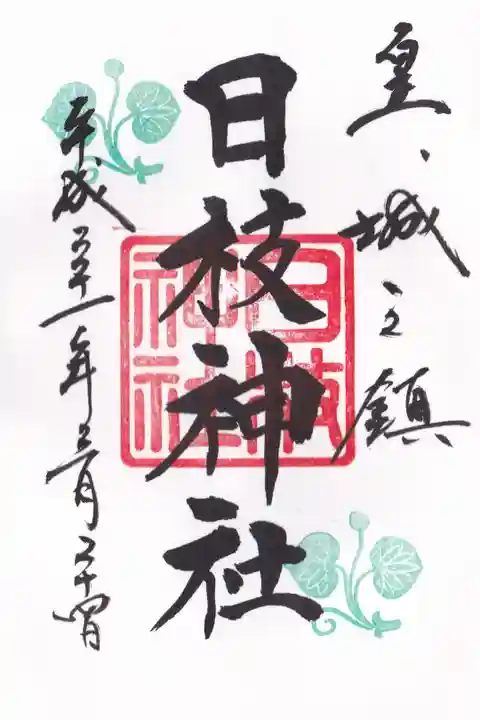 皇城之鎮
日枝神社
日枝神社
平成三十一年三月二十四日